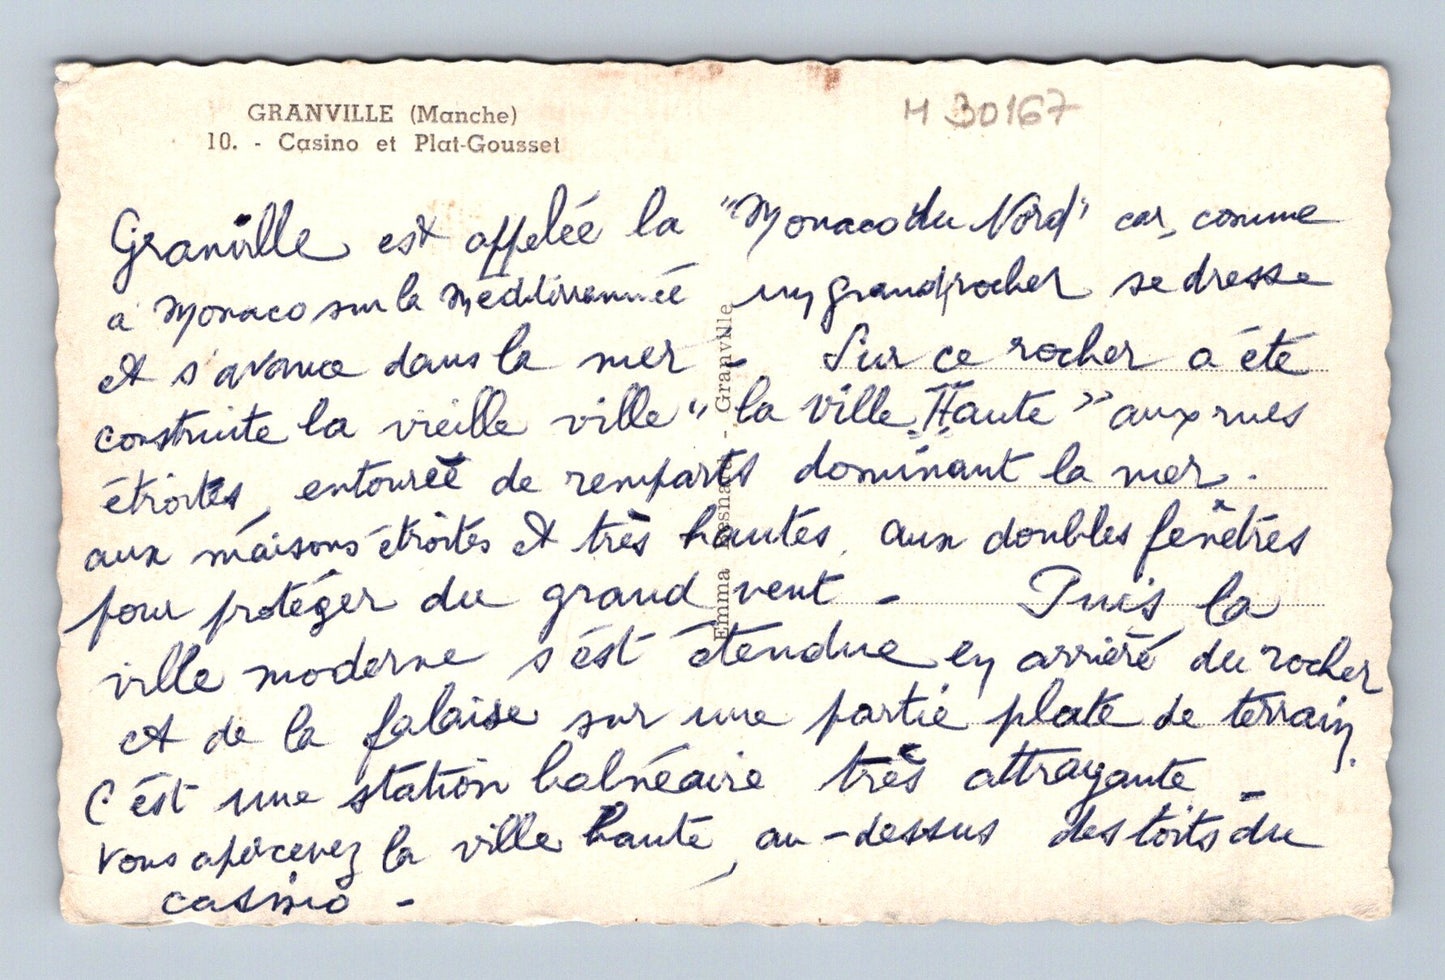 GRANVILLE (Manche)
10. - Casino et Plat-Gousset
H 30167
Granville est appelée la "Monaco du Nord" car, comme
à Monaco sur la Méditerrannée un grand rocher se dresse
et s'avance dans la mer - Sur ce rocher a été
construite la vieille ville "la ville Haute" aux rues
étroites, entourée de remparts dominant la mer.
aux maisons étroites et très hautes, aux doubles fenêtres
pour protéger du grand vent - Puis la
ville moderne s'est étendue en arrière du rocher
et de la falaise sur une partie plate de terrain.
C'est une station balnéaire très attrayante -
Vous apercevez la ville haute, au-dessus des toits du
casino -
Emma Besnard - Granville